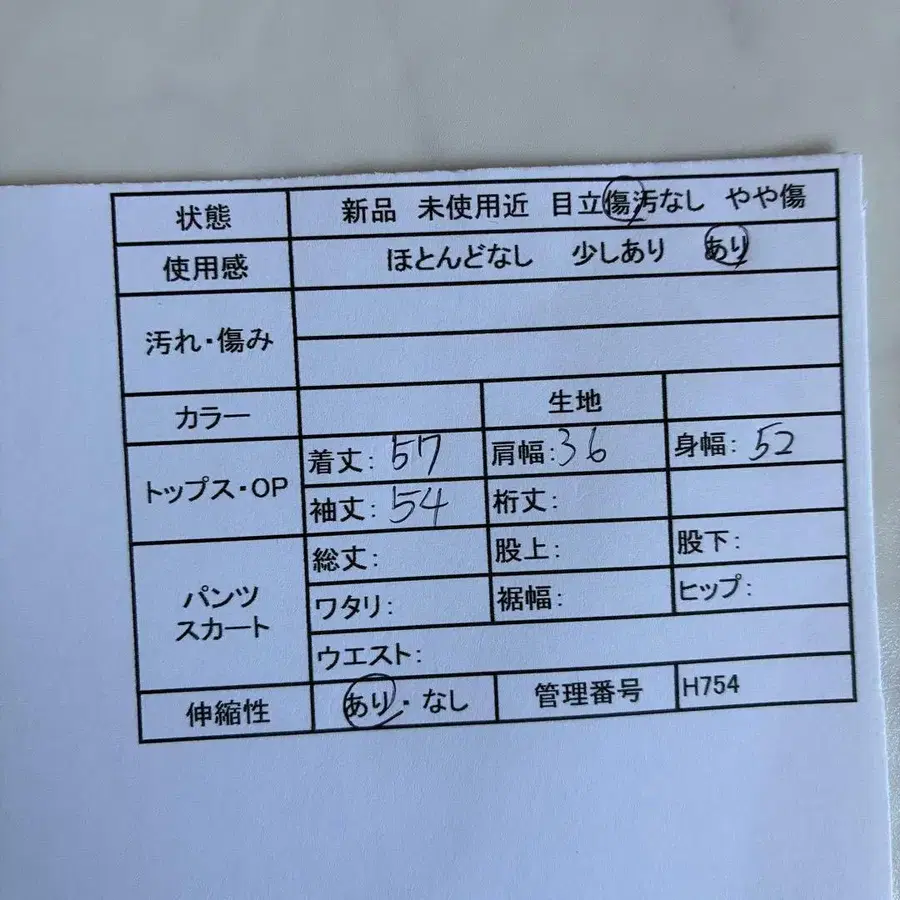 状態 新品 未使用近 目立傷汚なし やや傷
使用感 ほとんどなし 少しあり あり
汚れ・傷み
カラー 生地
トップス・OP
着丈: 57 肩幅: 36 身幅: 52
袖丈: 54 裄丈:
パンツ
スカート
総丈: 股上: 股下:
ワタリ: 裾幅: ヒップ:
ウエスト:
伸縮性 あり・なし 管理番号 H754